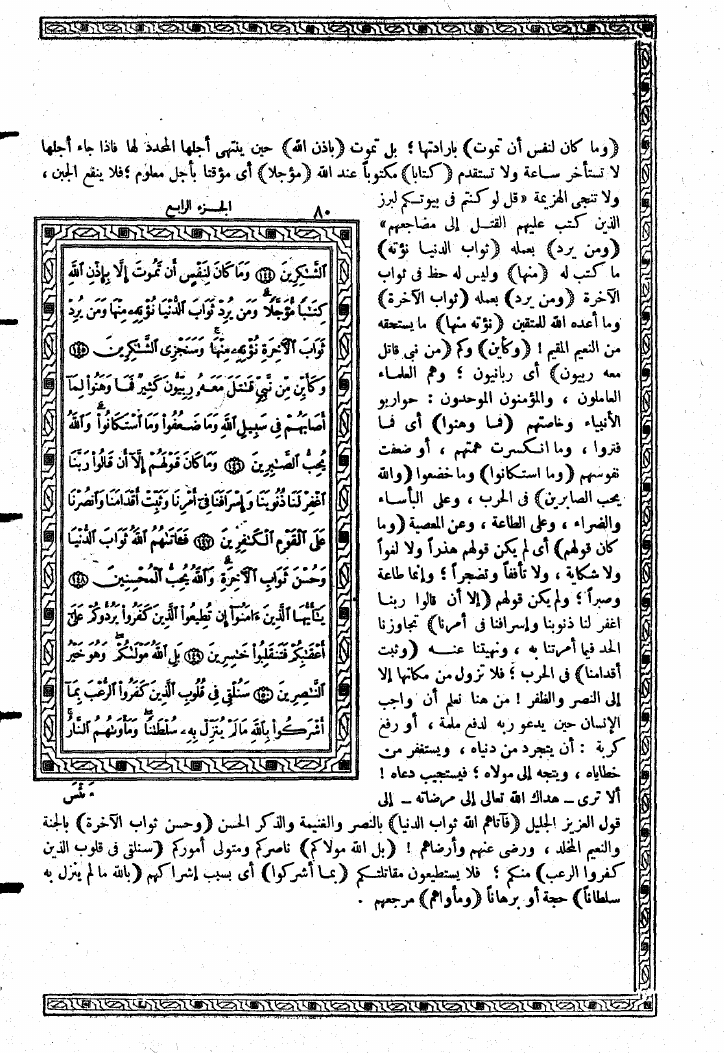 (وما كان لنفس أن تموت) بارادتها ؛ بل تموت (باذن الله) حين ينتهى أجلها المحدد لها فاذا جاء أجلها
لا تستأخر ساعة ولا تستقدم (كتابا) مكتوباً عند الله (مؤجلا) أى مؤقتا بأجل معلوم ؛ فلا ينفع الجبن ،
ولا تنجى الهزيمة «قل لو كنتم فى بيوتكم لبرز
الذين كتب عليهم القتل إلى مضاجعهم»
(ومن يرد) بعمله (ثواب الدنيا نؤته)
ما كتب له (منها) وليس له حظ فى ثواب
الآخرة (ومن يرد) بعمله (ثواب الآخرة)
وما أعده الله للمتقين (نؤته منها) ما يستحقه
من النعيم المقيم ! (وكأين) وكم (من نبى قاتل
معه ربيون) أى ربانيون ؛ وهم العلماء
العاملون ، والمؤمنون الموحدون : حواريو
الأنبياء وخاصتهم (فما وهنوا) أى فما
فتروا ، وما انكسرت همتهم ، أو ضعفت
نفوسهم (وما استكانوا) وما خضعوا (والله
يحب الصابرين) فى الحرب ، وعلى البأساء
والضراء ، وعلى الطاعة ، وعن المعصية (وما
كان قولهم) أى لم يكن قولهم هذراً ولا لغواً
ولا شكاية ، ولا تأففاً وتضجراً ؛ وإنما طاعة
وصبراً ؛ ولم يكن قولهم (إلا أن قالوا ربنا
اغفر لنا ذنوبنا وإسرافنا فى أمرنا) تجاوزنا
الحد فيما أمرتنا به ، ونهيتنا عنه (وثبت
أقدامنا) فى الحرب ؛ فلا تزول من مكانها إلا
إلى النصر والظفر ! من هنا نعلم أن واجب
الإنسان حين يدعو ربه لدفع ملمة ، أو رفع
كربة : أن يتجرد من دنياه ، ويستغفر من
خطاياه ، ويتجه إلى مولاه ؛ فيستجيب دعاه !
ألا ترى ـ هداك الله تعالى إلى مرضاته ـ إلى
قول العزيز الجليل (فآتاهم الله ثواب الدنيا) بالنصر والغنيمة والذكر الحسن (وحسن ثواب الآخرة) بالجنة
والنعيم المخلد ، ورضى عنهم وأرضاهم ! (بل الله مولاكم) ناصركم ومتولى أموركم (سنلقى فى قلوب الذين
كفروا الرعب) منكم ؛ فلا يستطيعون مقاتلتكم (بما أشركوا) أى بسبب إشراكهم (بالله ما لم ينزل به
سلطاناً) حجة أو برهاناً (ومأواهم) مرجعهم .
٨٠ الجزء الرابع
ٱلشَّـٰكِرِينَ ١٤٤ وَمَا كَانَ لِنَفْسٍ أَن تَمُوتَ إِلَّا بِإِذْنِ ٱللَّهِ
كِتَـٰبًا مُّؤَجَّلًا وَمَن يُرِدْ ثَوَابَ ٱلدُّنْيَا نُؤْتِهِۦ مِنْهَا وَمَن يُرِدْ
ثَوَابَ ٱلْـَٔاخِرَةِ نُؤْتِهِۦ مِنْهَا وَسَنَجْزِى ٱلشَّـٰكِرِينَ ١٤٥
وَكَأَيِّن مِّن نَّبِىٍّ قَـٰتَلَ مَعَهُۥ رِبِّيُّونَ كَثِيرٌ فَمَا وَهَنُوا۟ لِمَآ
أَصَابَهُمْ فِى سَبِيلِ ٱللَّهِ وَمَا ضَعُفُوا۟ وَمَا ٱسْتَكَانُوا۟ وَٱللَّهُ
يُحِبُّ ٱلصَّـٰبِرِينَ ١٤٦ وَمَا كَانَ قَوْلَهُمْ إِلَّآ أَن قَالُوا۟ رَبَّنَا
ٱغْفِرْ لَنَا ذُنُوبَنَا وَإِسْرَافَنَا فِىٓ أَمْرِنَا وَثَبِّتْ أَقْدَامَنَا وَٱنصُرْنَا
عَلَى ٱلْقَوْمِ ٱلْكَـٰفِرِينَ ١٤٧ فَـَٔاتَىٰهُمُ ٱللَّهُ ثَوَابَ ٱلدُّنْيَا
وَحُسْنَ ثَوَابِ ٱلْـَٔاخِرَةِ وَٱللَّهُ يُحِبُّ ٱلْمُحْسِنِينَ ١٤٨
يَـٰٓأَيُّهَا ٱلَّذِينَ ءَامَنُوٓا۟ إِن تُطِيعُوا۟ ٱلَّذِينَ كَفَرُوا۟ يَرُدُّوكُمْ عَلَىٰٓ
أَعْقَـٰبِكُمْ فَتَنقَلِبُوا۟ خَـٰسِرِينَ ١٤٩ بَلِ ٱللَّهُ مَوْلَىٰكُمْ وَهُوَ خَيْرُ
ٱلنَّـٰصِرِينَ ١٥٠ سَنُلْقِى فِى قُلُوبِ ٱلَّذِينَ كَفَرُوا۟ ٱلرُّعْبَ بِمَآ
أَشْرَكُوا۟ بِٱللَّهِ مَا لَمْ يُنَزِّلْ بِهِۦ سُلْطَـٰنًا وَمَأْوَىٰهُمُ ٱلنَّارُ